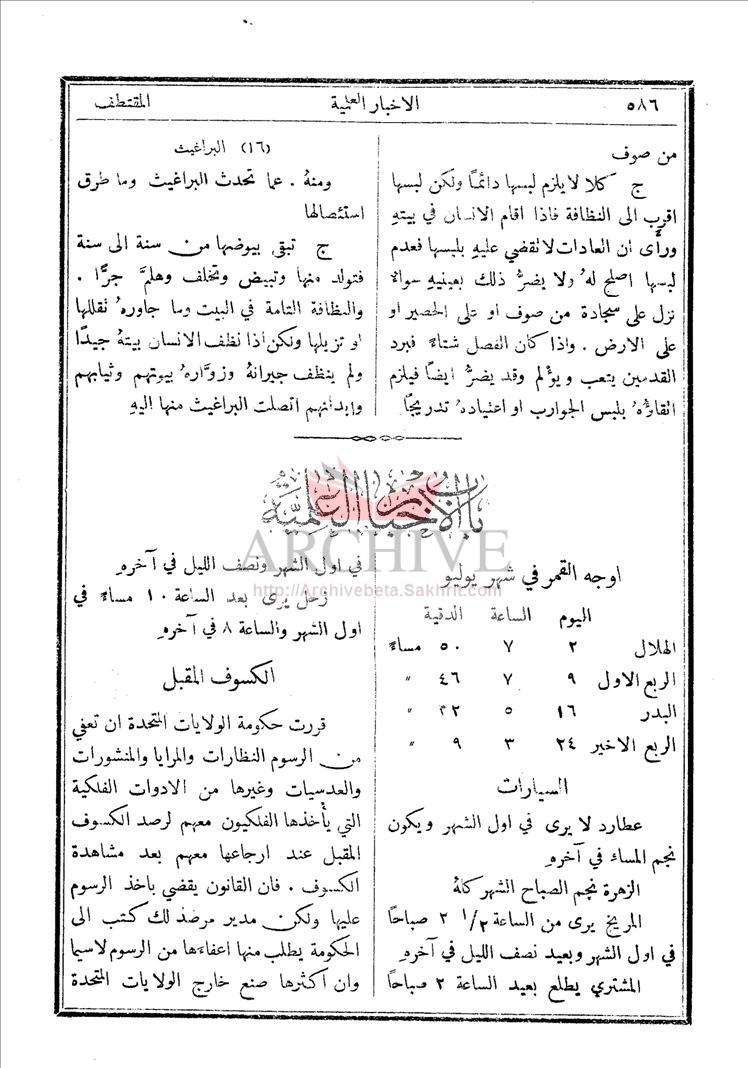 ٥٨٦
الاخبار العلمية
المقتطف
من صوف
ج كلا لا يلزم لبسها دائمًا ولكن لبسها
اقرب الى النظافة فاذا اقام الانسان في بيتهِ
ورأى ان العادات لا تقضي عليهِ بلبسها فعدم
لبسها اصلح لهُ ولا يضرُّ ذلك بعينيهِ سواءٌ
نزل على سجادة من صوف او على الحصير او
على الارض . واذا كان الفصل شتاءً فبرد
القدمين يتعب ويؤلم وقد يضرُّ ايضًا فيلزم
اتقاؤهُ بلبس الجوارب او اعتيادهُ تدريجًا
(١٦) البراغيث
ومنهُ . عما تحدث البراغيث وما طرق
استئصالها
ج تبقى بيوضها من سنة الى سنة
فتولد منها وتبيض وتخلف وهلمَّ جرًّا .
والنظافة التامة في البيت وما جاورهُ تقللها
او تزيلها ولكن اذا نظف الانسان بيتهُ جيدًا
ولم ينظف جيرانهُ وزوَّارهُ بيوتهم وثيابهم
وابدانهم اتصلت البراغيث منها اليهِ
باب الاخبار العلمية
اوجه القمر في شهر يوليو
اليوم الساعة الدقيقة
الهلال ٢ ٧ ٥٠ مساءً
الربع الاول ٩ ٧ ٤٦ "
البدر ١٦ ٥ ٢٢ "
الربع الاخير ٢٤ ٣ ٩ "
السيارات
عطارد لا يرى في اول الشهر ويكون
نجم المساء في آخرهِ
الزهرة نجم الصباح الشهر كلهُ
المريخ يرى من الساعة ٢ ١/٢ صباحًا
في اول الشهر وبعيد نصف الليل في آخرهِ
المشتري يطلع بعيد الساعة ٢ صباحًا
في اول الشهر ونصف الليل في آخرهِ
زحل يرى بعد الساعة ١٠ مساءً في
اول الشهر والساعة ٨ في آخرهِ
الكسوف المقبل
قررت حكومة الولايات المتحدة ان تعفي
من الرسوم النظارات والمرايا والمنشورات
والعدسيات وغيرها من الادوات الفلكية
التي يأخذها الفلكيون معهم لرصد الكسوف
المقبل عند ارجاعها معهم بعد مشاهدة
الكسوف . فان القانون يقضي باخذ الرسوم
عليها ولكن مدير مرصد لك كتب الى
الحكومة يطلب منها اعفاءها من الرسوم لاسيما
وان اكثرها صنع خارج الولايات المتحدة
ARCHIVE
http://Archivebeta.Sakhrit.com